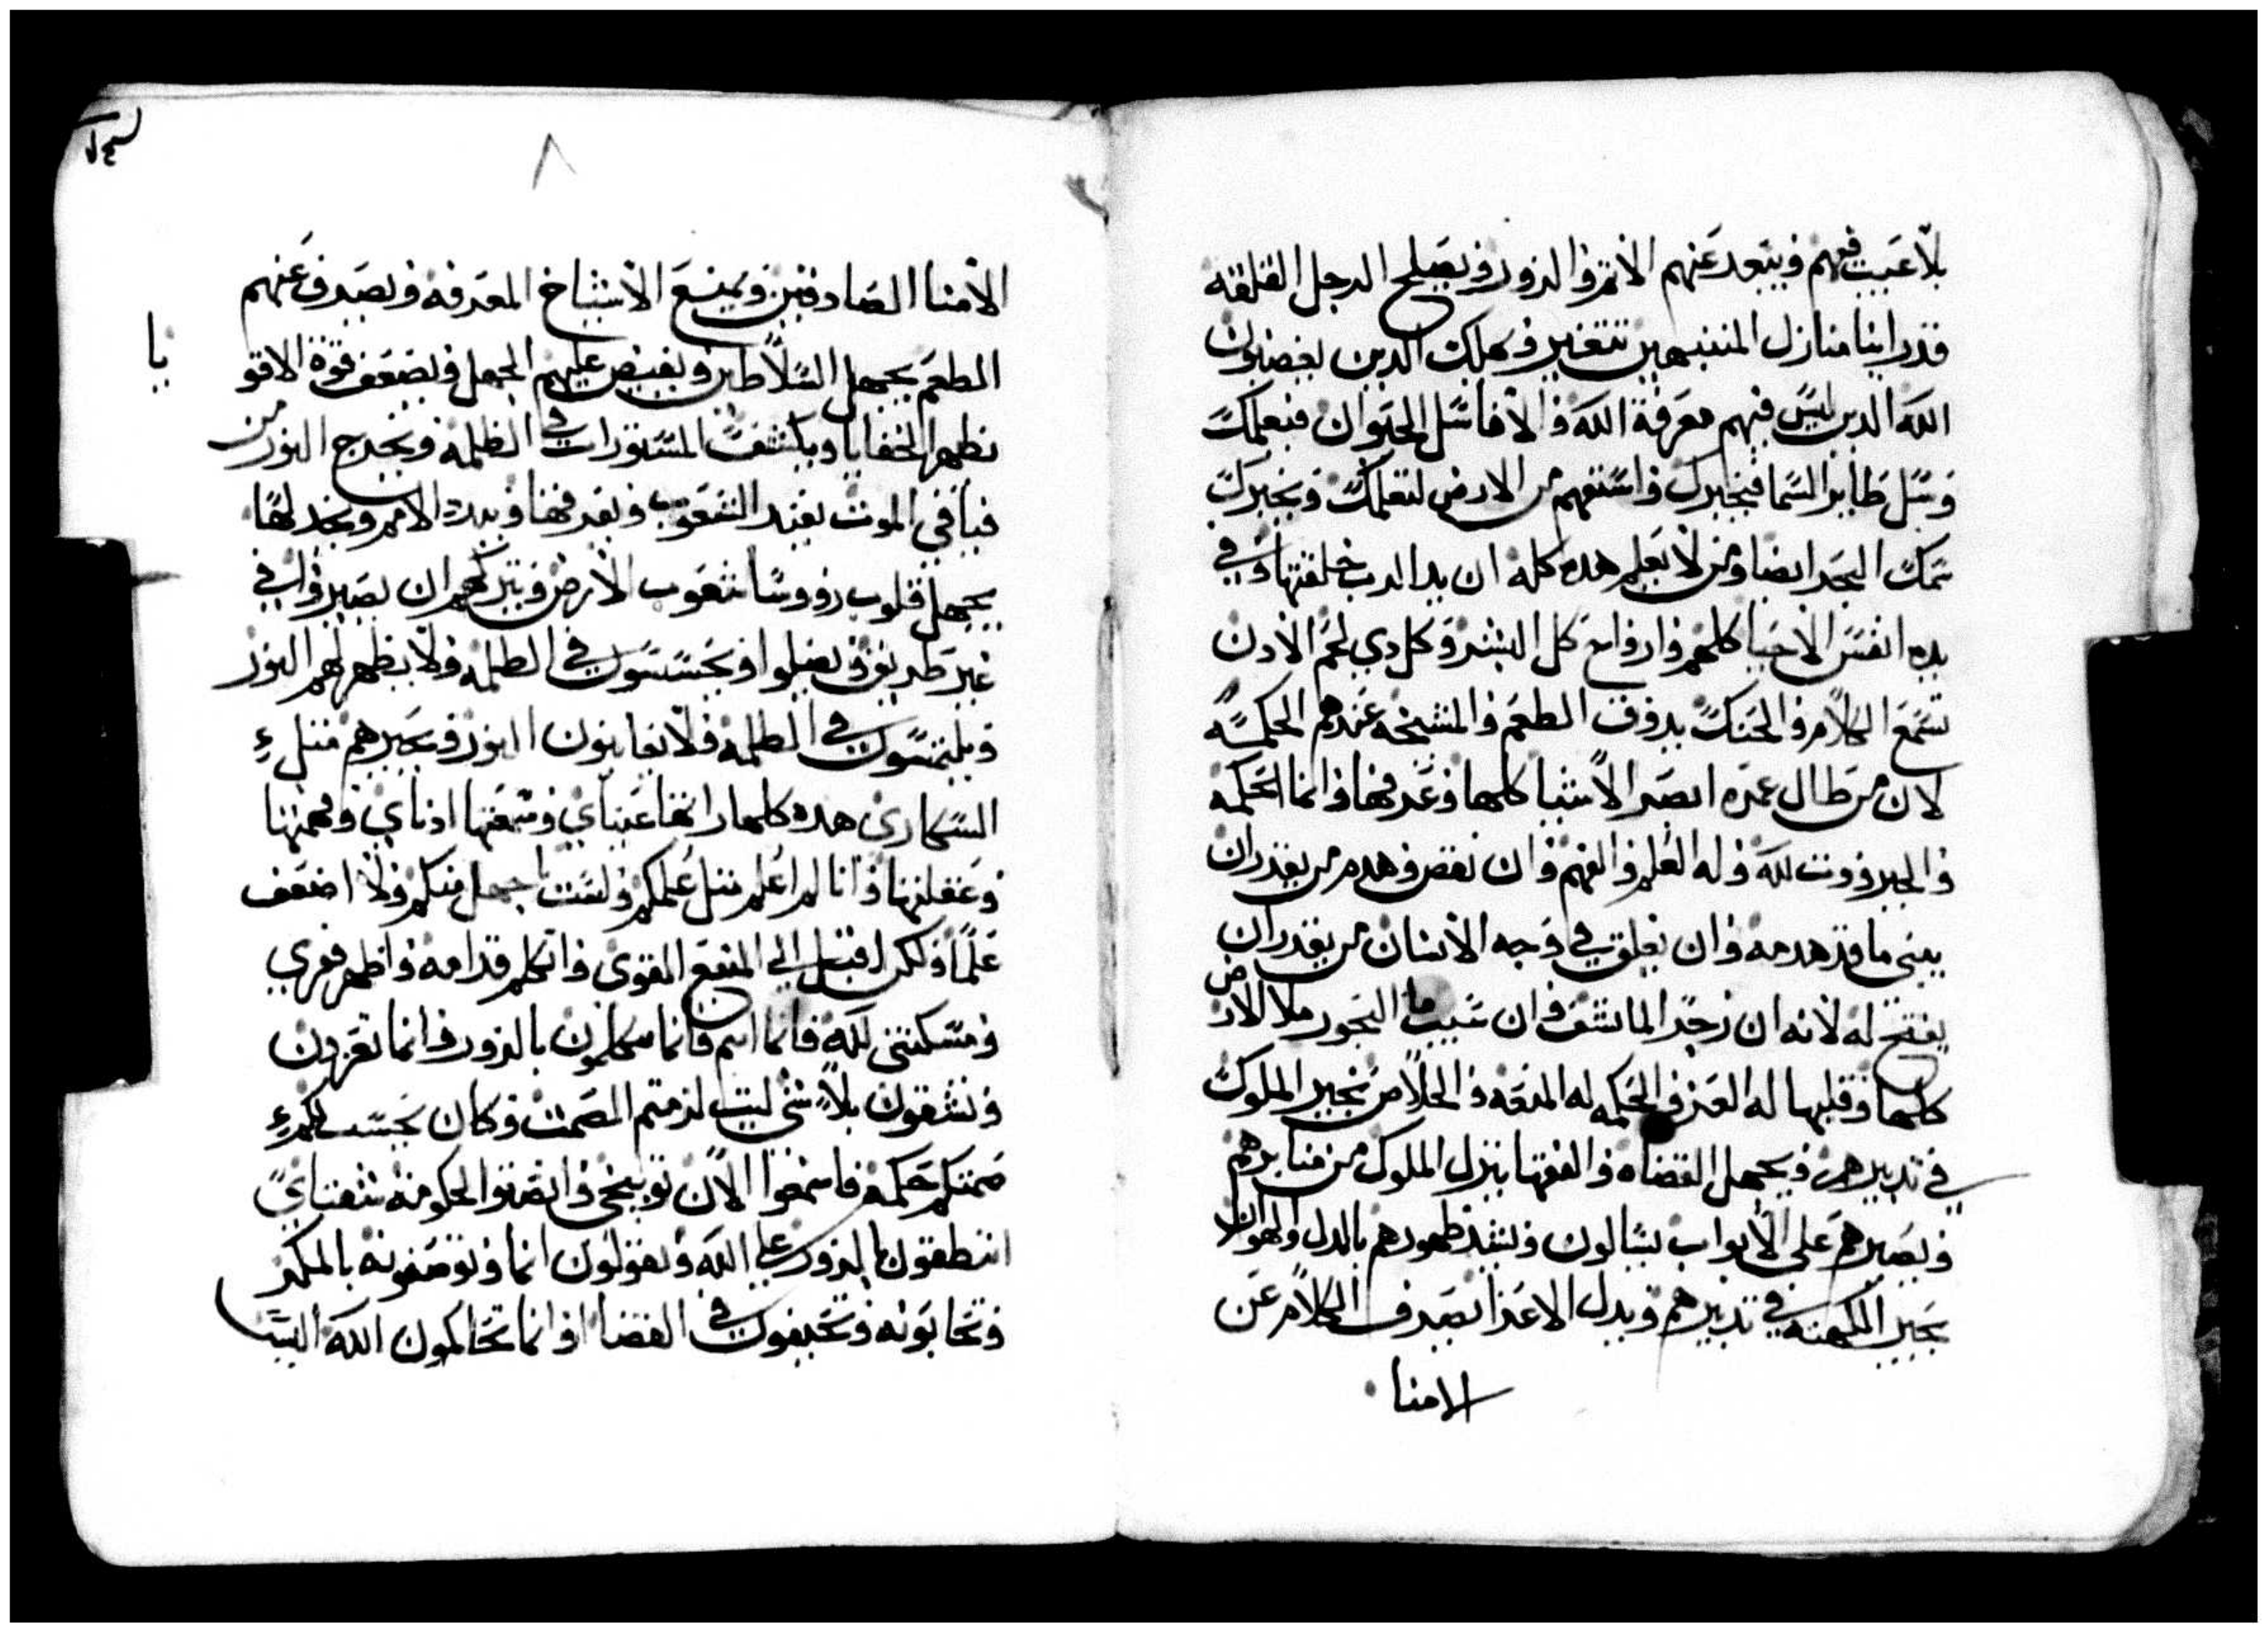 بلا عيب فيهم ويبعد عنهم الاثم والزور ويصلح الرجل القلقه
قد راينا منازل المنتبهين تتغير وهلك الدين يغضبون
الله الدين ليس فيهم معرفة الله والا فاسل الحيوان فيعلمك
وسل طاير السما فيخبرك واستفهم من الارض لتعلمك ويخبرك
سمك البحر ايضا ومن لا يعلم هده كله ان يد الرب خلقتها وفي
يده انفس الاحيا كلهم وارواح كل البشر وكل دي لحم الادن
تسمع الكلام والحنك يدوق الطعم والمشيخه عندهم الحكمه
لان من طال عمره ابصر الاشيا كلها وعرفها وانما الحكمه
والجبروت لله وله العلم والفهم وان نقض وهدم من يقدر ان
يبني ما قد هدمه وان يغلق في وجه الانسان من يقدر ان
يفتح له لانه ان زجر الما نشف وان سيب ما البحور ملا الارض
كلها وقلبها له العز والحكمه له المنعه والخلاص يخير الملوك
في تدبيرهم ويجهل القضاه والفقها ينزل الملوك من منابرهم
ويصيرهم على الابواب يسالون ويشد ظهورهم بالدل والهوان
يحير الكهنه في تدبيرهم ويدل الاعزا يصرف الكلام عن
الامنا
٨
الامنا الصادقين ويمنع الاشياخ المعرفه ويصرف عنهم
الطعم يجهل السلاطين ويفيض عليهم الجهل ويضعف قوة الاقو
يا
يظهر الخفايا ويكشف المستورات في الظلمه ويخرج النور من
فيافي الموت يغير الشعوب ويفرقها ويبدد الامم ويخدلها
يجهل قلوب رووسا شعوب الارض ويتركهم ان يصيروا في
غير طريق ويضلوا ويجسسون في الظلمه ولا يظهر لهم النور
ويلتمسون في الظلمه ولا يعاينون النور ويحيرهم متل
السكارى هده كلها راتها عيناي وسمعتها ادناي وفهمتها
وعقلتها وانا لم اعلم متل علمكم ولست باجهل منكم ولا اضعف
علما ولكن اقبل الي المنيع القوى واتكلم قدامه واظهر فقري
ومسكنتي لله فاما انتم فانما تتكلمون بالزور وانما تعزون
وتشفون بلا شي ليت لزمتم الصمت وكان يحسب لكم
صمتكم حكمه فاسمعوا الان توبيخي وانصتوا لحكومة شفتاي
اتنطقون بالزور على الله وتقولون انما وتوصفونه بالمكر
وتحابونه وتحيفون في القضا او انما تحاكمون الله اليس